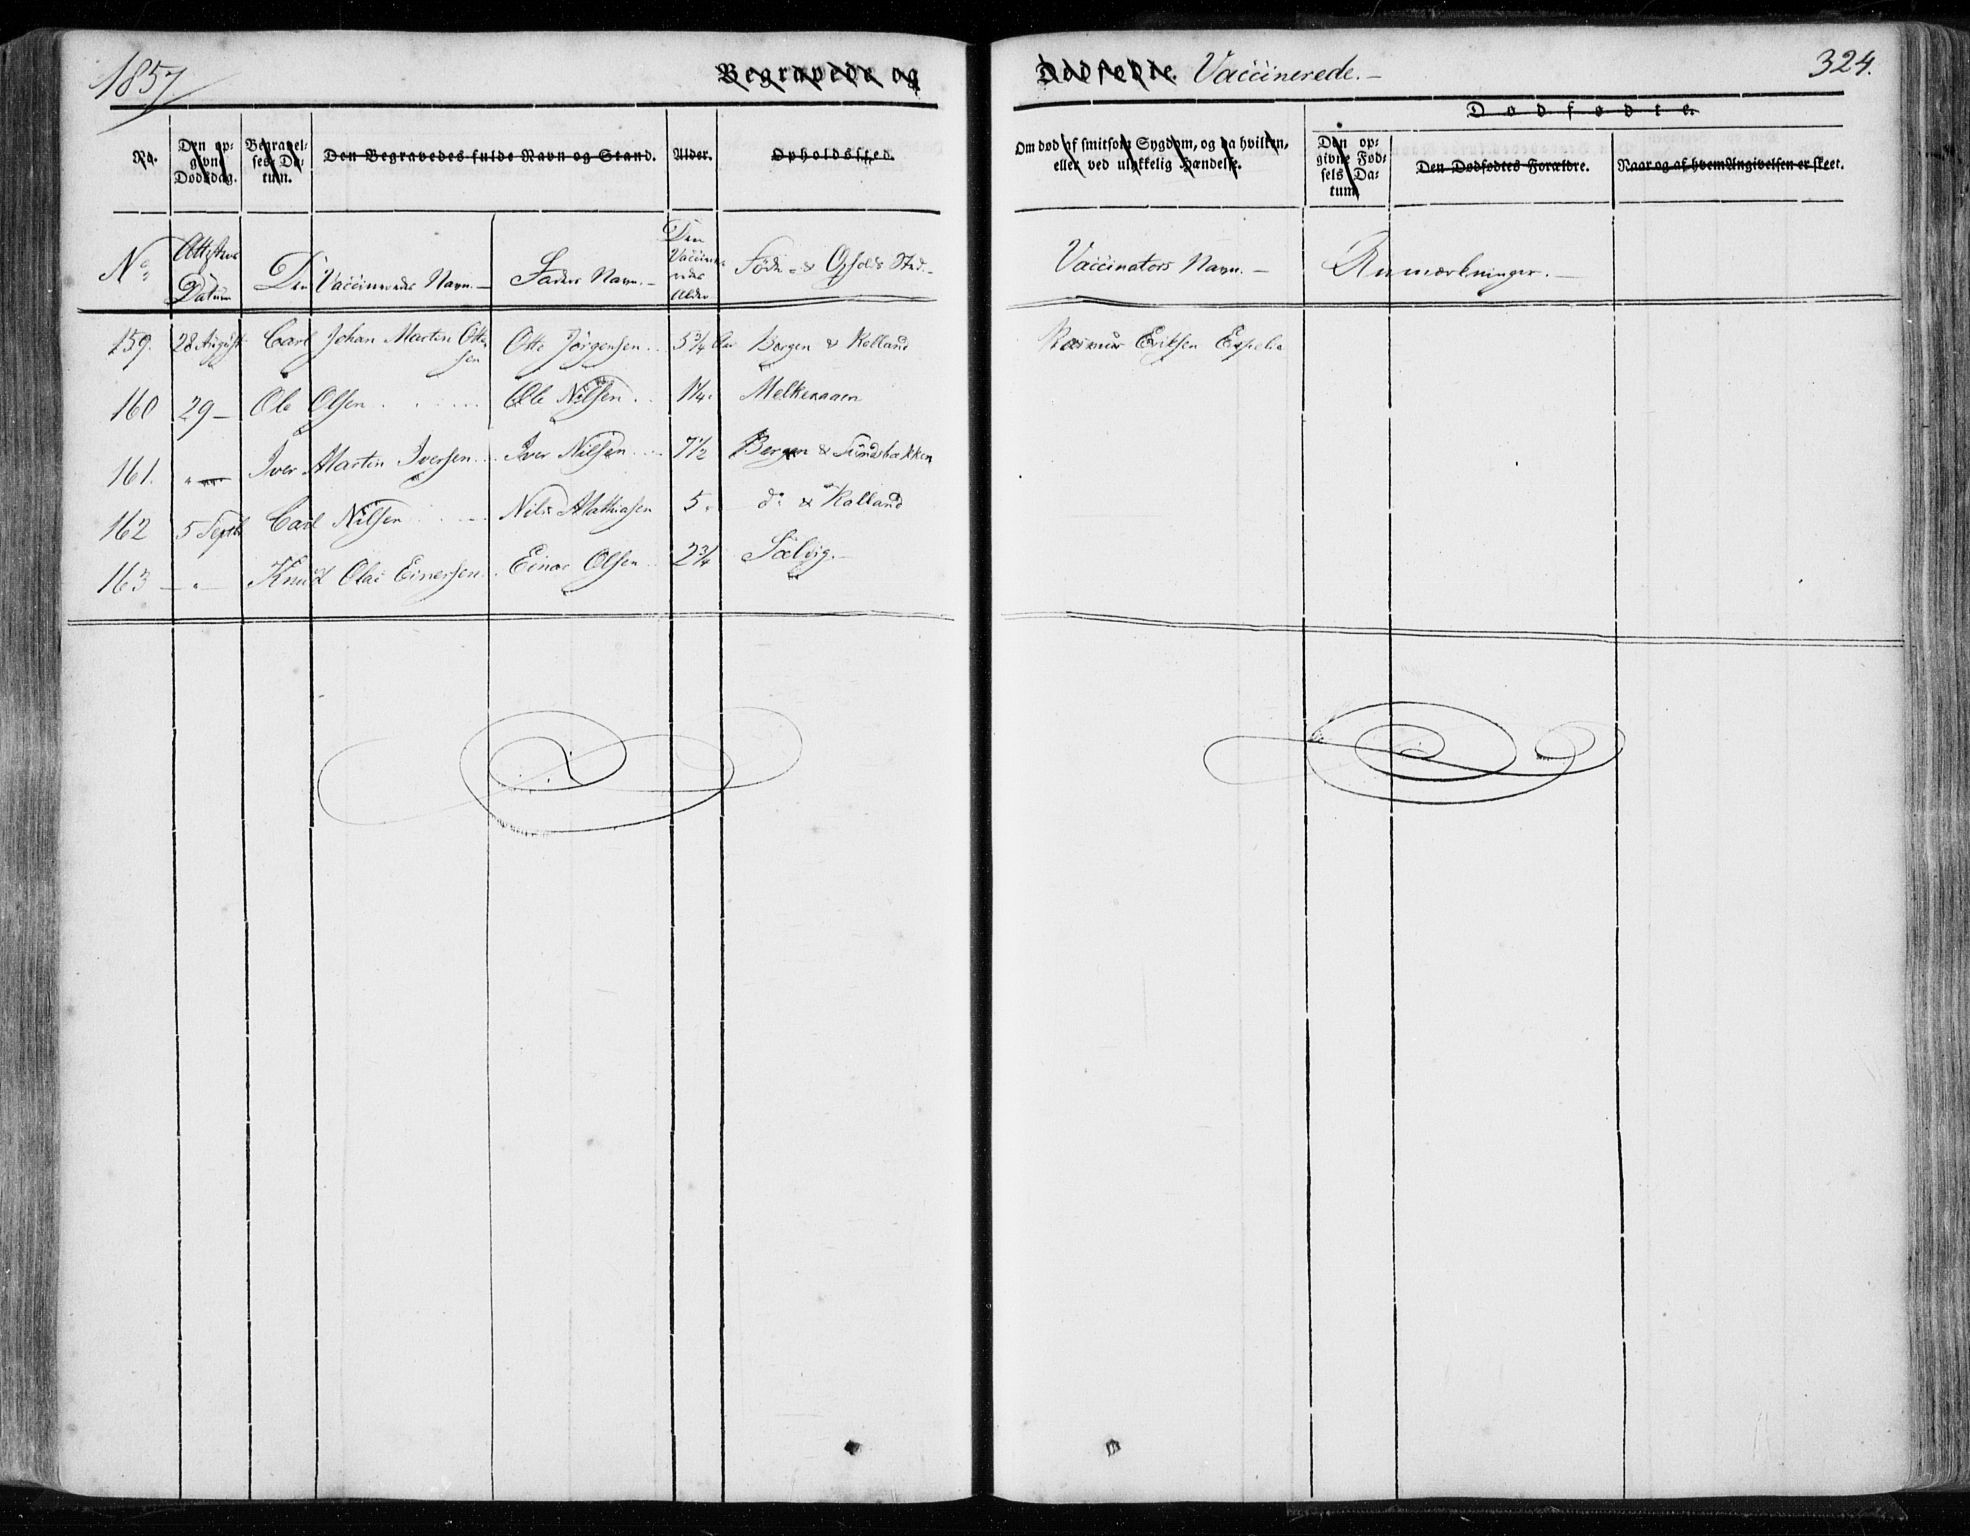 1857
Begravede og Dødfødte. Vaccinerede. –
324.
Dødfødte.
Nr. Den opgivne Dødsdag. Begravelses Datum. Den Begravedes fulde Navn og Stand. Alder. Opholdssted. Om død af smitsom Sygdom, og da hvilken, eller ved ulykkelig Hændelse. Den opgivne Fødsels Datum. Den Dødfødtes Forældre. Naar og af hvem Angivelsen er skeet.
No. Attestens Datum Den Vaccineredes Navn. – Faders Navn. – Den Vaccineredes Alder Føde- & Opholds Sted. – Vaccinators Navn. – Anmærkninger. –
159. 28 August Carl Johan Martin Ottesen Otte Jørgensen 5 3/4 Aar Bergen & Kolland Rasmus Eriksen Espelie
160 29 – Ole Olsen Ole Nilsen 1 1/4. Melkeraaen
161. " Iver Martin Iversen Iver Nilsen 7 1/2 Bergen & Sundsbakken
162 5 Septbr Carl Nilsen Nils Mathiasen 5. do & Kolland
163 – " – Knud Olai Einersen Einar Olsen 2 3/4 Sælvig. –